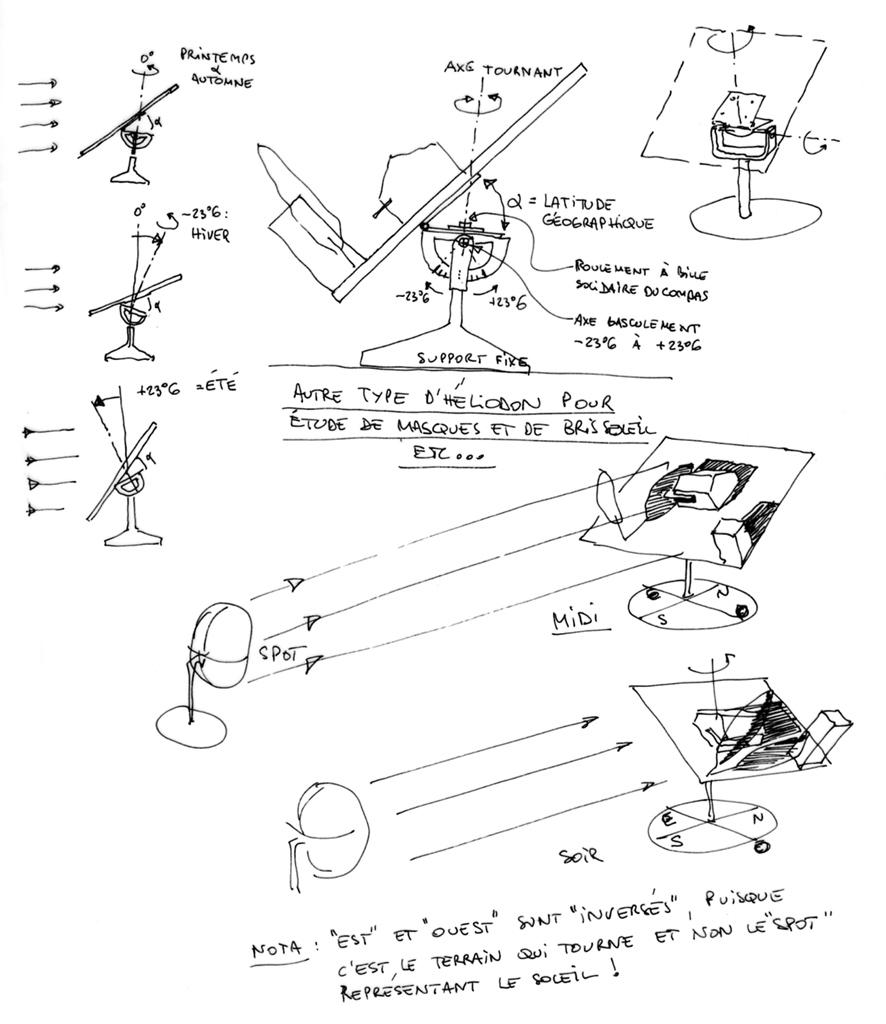 0°
PRINTEMPS
&
AUTOMNE
α
0°
-23°6 :
HIVER
α
+23°6 = ÉTÉ
α
AXE TOURNANT
α = LATITUDE
GÉOGRAPHICQUE
ROULEMENT À BILLE
SOLIDAIRE DU COMPAS
-23°6
+23°6
AXE BASCULEMENT
-23°6 À +23°6
SUPPORT FIXE
AUTRE TYPE D'HÉLIODON POUR
ÉTUDE DE MASQUES ET DE BRISSOLEIL
ETC...
SPOT
N
S
MIDI
E
N
S
O
SOIR
NOTA : "EST" ET "OUEST" SONT "INVERSÉS", PUISQUE
C'EST LE TERRAIN QUI TOURNE ET NON LE "SPOT"
REPRÉSENTANT LE SOLEIL !